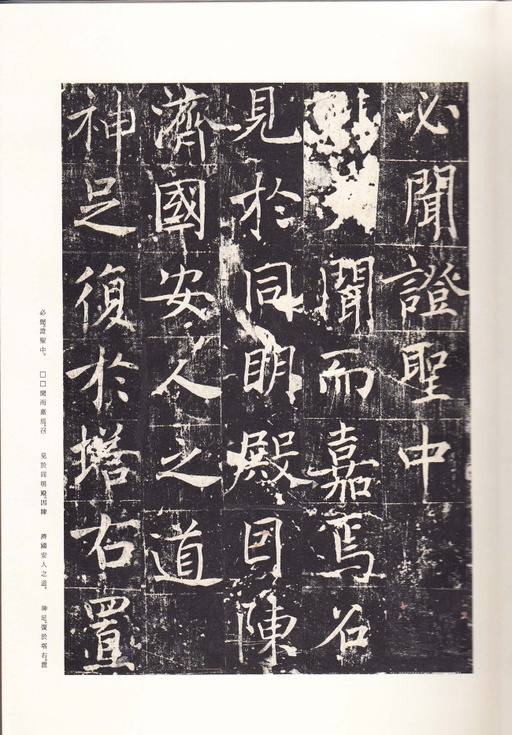 必聞證聖中
聞而嘉焉召
見於同明殿因陳
濟國安人之道
神足復於塔右置
必聞證聖中。 □□聞而嘉焉。召 見於同明殿。因陳 濟國安人之道。 神足復於塔右置